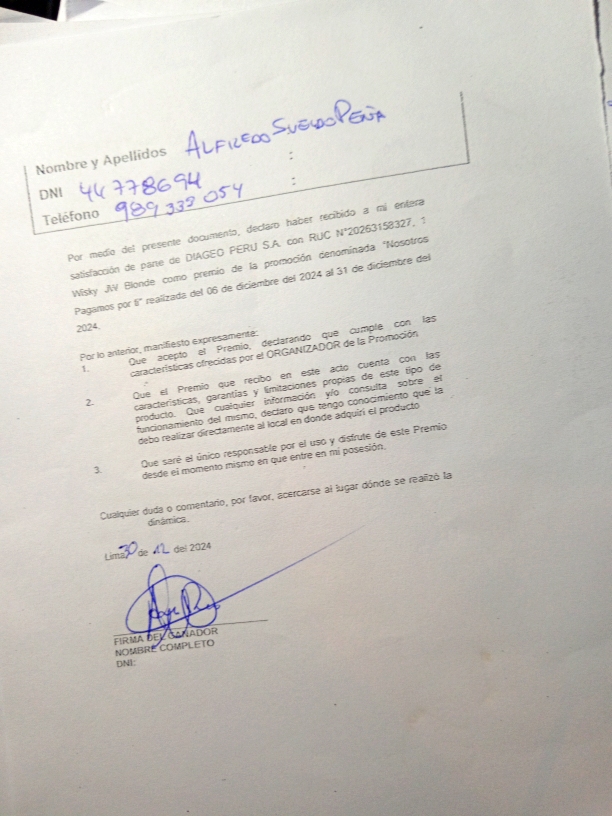 Nombre y Apellidos : ALFREDO SUELDO PEÑA
DNI : 44778694
Teléfono 989 339 054
Por medio del presente documento, declaro haber recibido a mi entera
satisfacción de parte de DIAGEO PERU S.A. con RUC N°20263158327, 1
Wisky JW Blonde como premio de la promoción denominada "Nosotros
Pagamos por ti" realizada del 06 de diciembre del 2024 al 31 de diciembre del
2024.
Por lo anterior, manifiesto expresamente:
1. Que acepto el Premio, declarando que cumple con las
características ofrecidas por el ORGANIZADOR de la Promoción
2. Que el Premio que recibo en este acto cuenta con las
características, garantías y limitaciones propias de este tipo de
producto. Que cualquier información y/o consulta sobre el
funcionamiento del mismo, declaro que tengo conocimiento que la
debo realizar directamente al local en donde adquirí el producto
3. Que seré el único responsable por el uso y disfrute de este Premio
desde el momento mismo en que entre en mi posesión.
Cualquier duda o comentario, por favor, acercarse al lugar dónde se realizó la
dinámica.
Lima, 30 de 12 del 2024
FIRMA DEL GANADOR
NOMBRE COMPLETO
DNI: